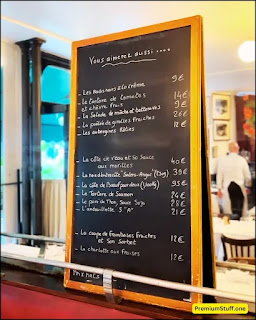 Vous aimerez aussi ....
_ Les Radis noirs à la crème 9€
_ Le Carpaccio de tomates
et chèvre frais 14€
_ La Salade de mâche et betteraves 9€
_ La poêlée de girolles Fraîches 26€
_ Les aubergines Rôties 12€
_ La côte de Veau et Sa Sauce
aux morilles 40€
39€
_ La côte de Boeuf pour deux 95€
_ Le Tartare de Saumon 24€
_ Le pavé de Thon, Sauce Soja 28€
_ L'andouillette 5 "A" 21€
_ La coupe de Framboises Fraîches
et Son Sorbet 12€
_ La charlotte aux fraises 12€
PremiumStuff.one